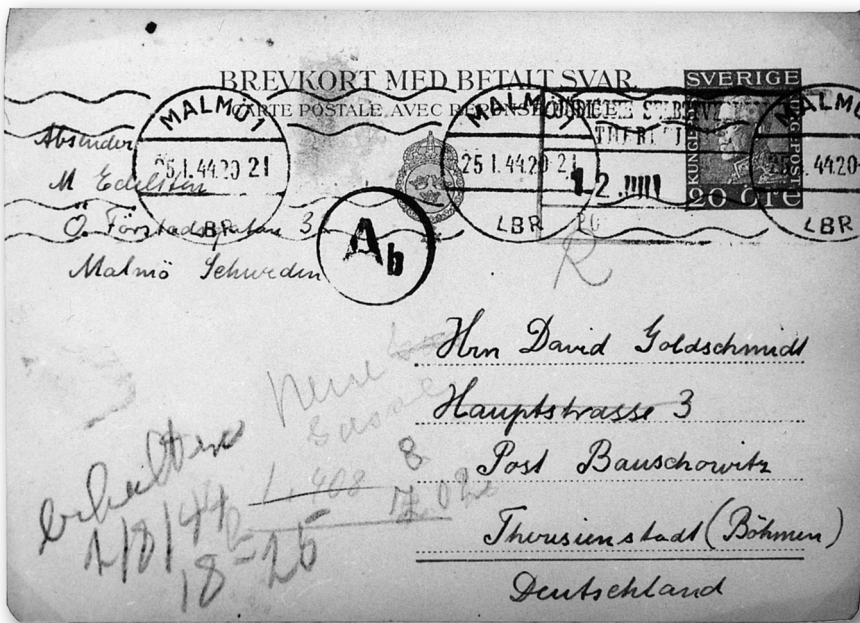 BREVKORT MED BETALT SVAR.
CARTE POSTALE AVEC RÉPONSE
SVERIGE
KUNGL. POST.
20 ÖRE
MALMÖ 1
25 1.44.20 21
LBR
MALMÖ 1
25 1.44.20 21
LBR
MALMÖ
1.44.20
LBR
12
Absender
M Edelstein
Ö. Förstadsgatan 3
Malmö Schweden
Ab
R
Hrn David Goldschmidt
Hauptstrasse 3
Post Bauschowitz
Theresienstadt (Böhmen)
Deutschland
Neue
Gasse
8
L. 408
erhalten
2/8/44
18-25